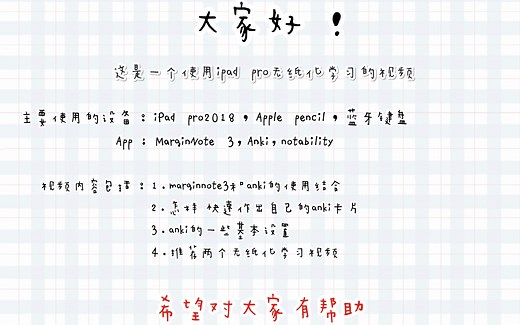 大家好！
这是一个使用ipad pro无纸化学习的视频
主要使用的设备：iPad pro2018，Apple pencil，蓝牙键盘
App：MarginNote 3，Anki，notability
视频内容包括：1.marginnote3和anki的使用结合
2.怎样快速作出自己的anki卡片
3.anki的一些基本设置
4.推荐两个无纸化学习视频
希望对大家有帮助